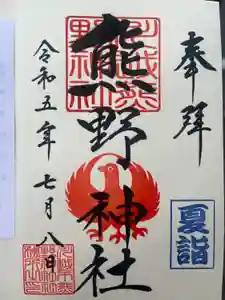 奉拝
夏詣
熊野神社
令和五年七月八日